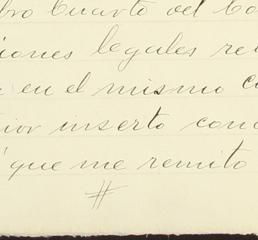 bro Cuarto del Co
iones legales re
en el mismo co
rior inserto conc
que me remito
#